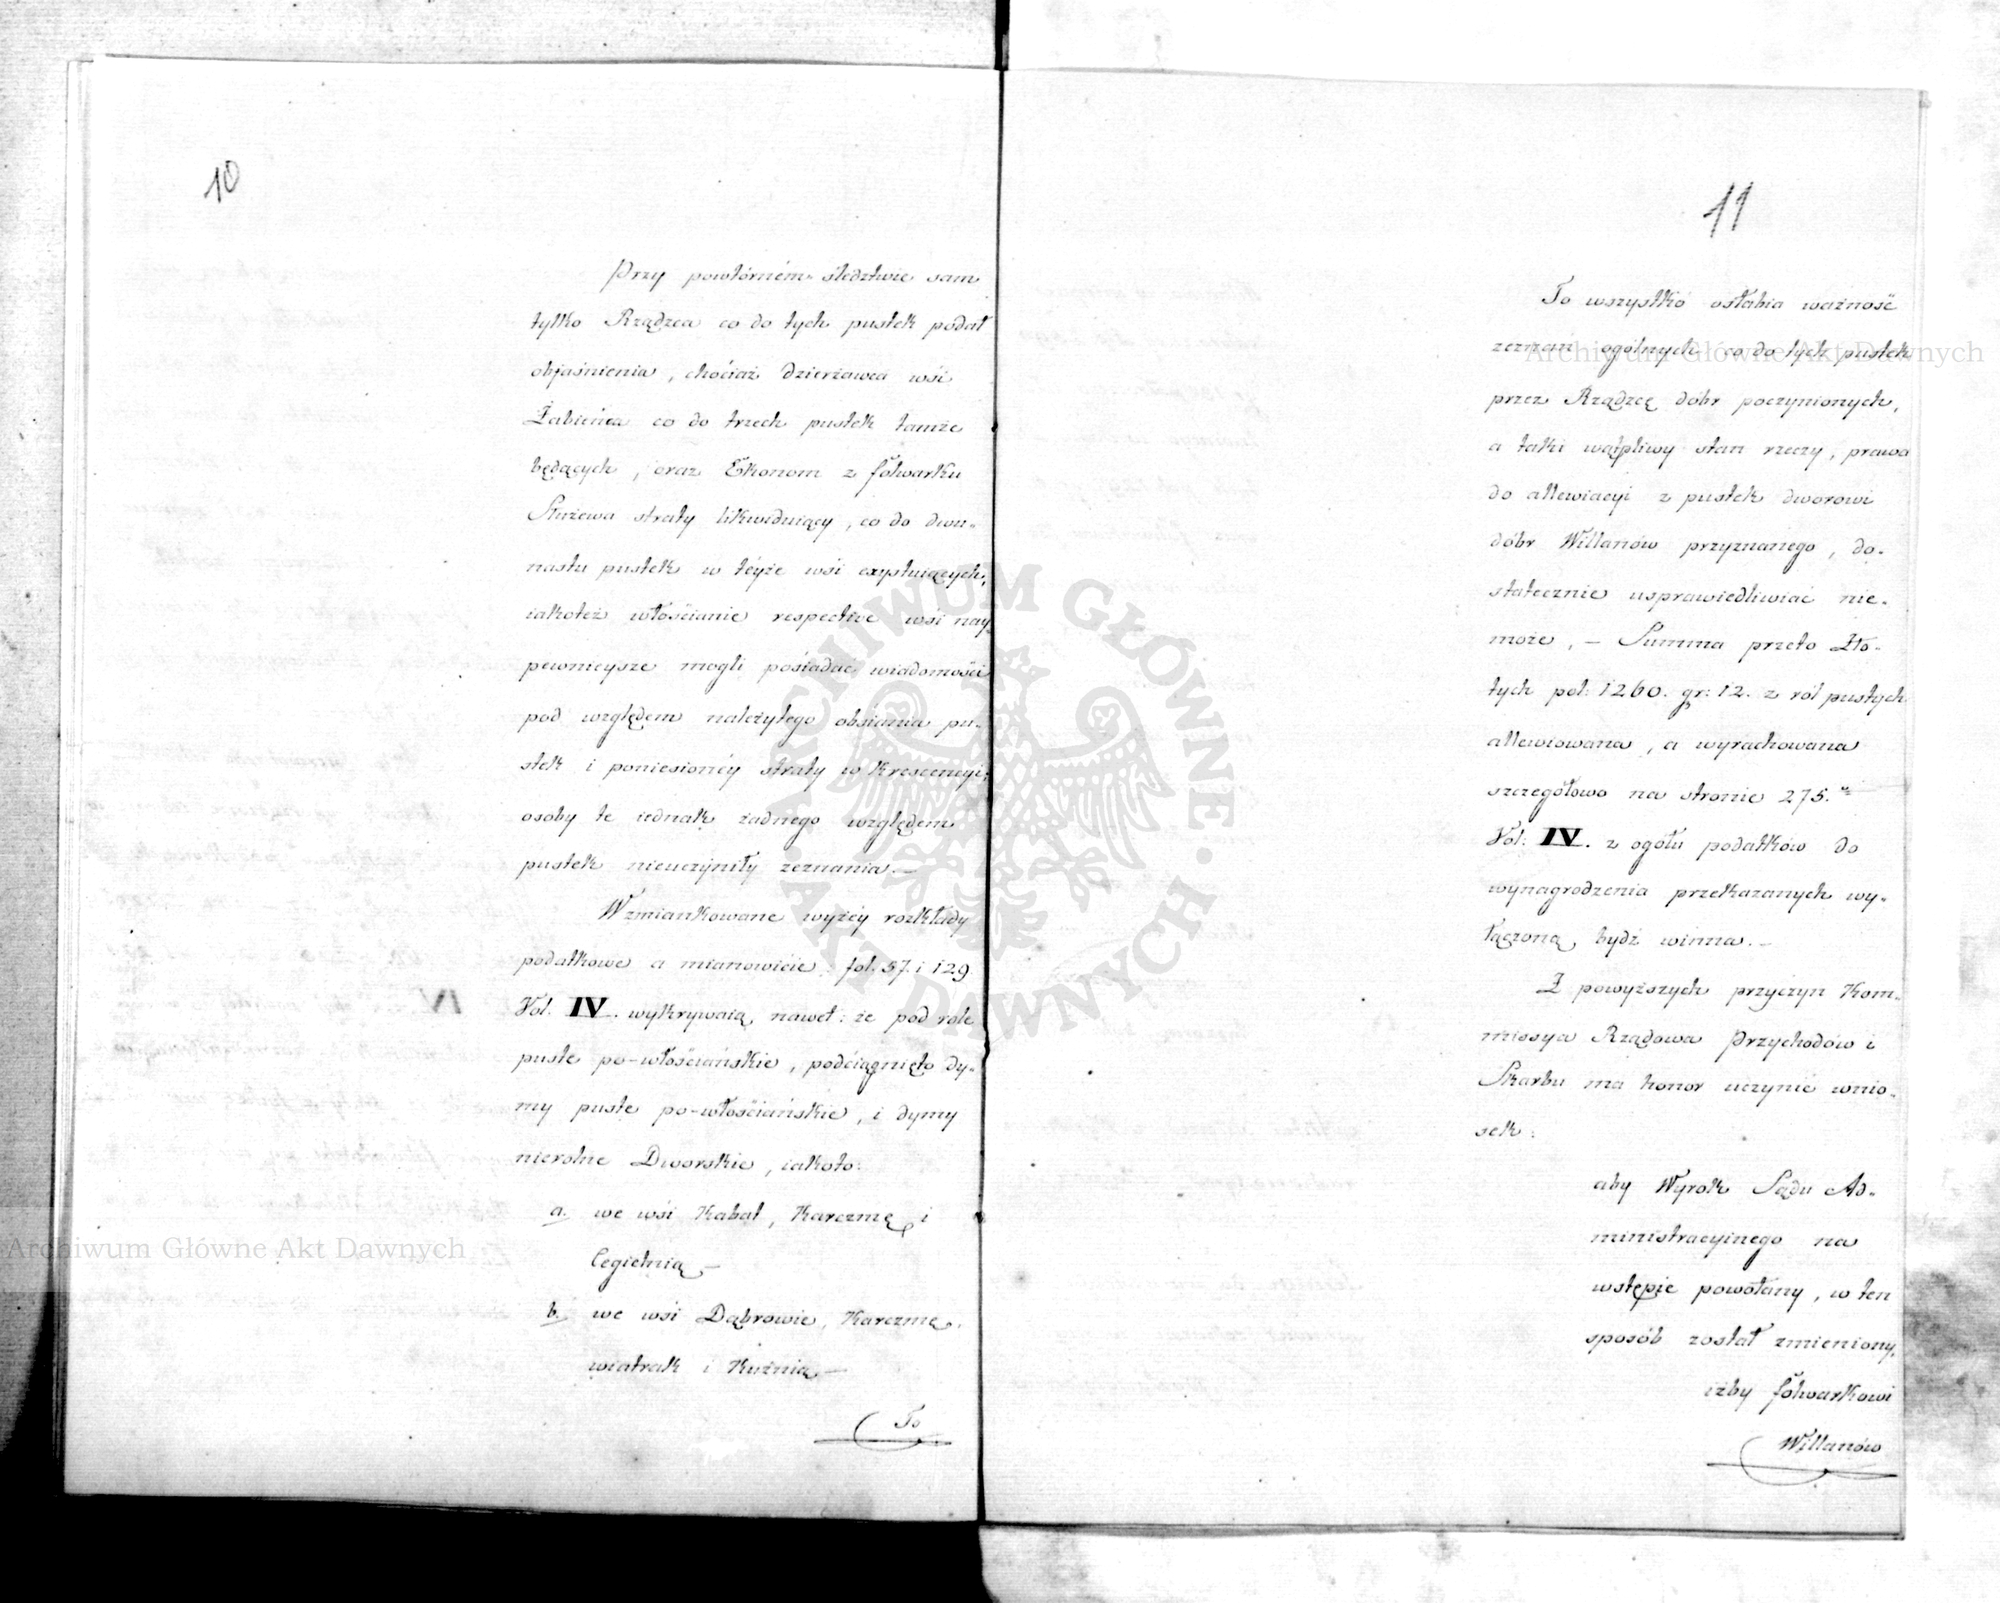 10
Przy powtórném śledztwie sam
tylko Rządzca co do tych pustek podał
objaśnienia, chociaż Dzierżawca wsi
Żabieńca co do trzech pustek tamże
będących, oraz Ekonom z folwarku
Służewa straty likwiduiący, co do dwu-
nastu pustek w téyże wsi exystuiących,
iakoteż włościanie respective wsi nay
pewnieysze mogli posiadać wiadomości
pod względem należytego obsiania pu-
stek i poniesionéy straty w krescencyi;
osoby te iednak żadnego względem
pustek nieuczyniły zeznania. —
Wzmiankowane wyżéy rozkłady
podatkowe a mianowicie: fol. 57. i 129
Vol. IV. wykrywaią nawet: że pod role
puste po-włościańskie, podciągnięto dy-
my puste po-włościańskie, i dymy
nierolne Dworskie, iakoto:
a. we wsi Kabat, Karczmę i
Cegielnią —
b. we wsi Dąbrowie, Karczmę,
wiatrak i Kuźnią —
To
11
To wszystko osłabia ważność
zeznan ogólnych co do tych pustek
przez Rządzcę dóbr poczynionych,
a taki wątpliwy stan rzeczy, prawa
do allewiacyi z pustek dworowi
dóbr Willanów przyznanego, do-
statecznie usprawiedliwiać nie-
może, — Summa przeto Zło-
tych pol: 1260. gr: 12. z ról pustych
allewiowana, a wyrachowana
szczegółowo na stronie 275.
Vol. IV. z ogółu podatków do
wynagrodzenia przekazanych wy-
łączoną bydź winna. —
Z powyższych przyczyn Kom-
missya Rządowa Przychodów i
Skarbu ma honor uczynić wnio-
sek:
aby Wyrok Sądu Ad-
ministracyinego na
wstępie powołany, w ten
sposób został zmieniony,
iżby folwarkowi
Willanów
Archiwum Główne Akt Dawnych
Archiwum Główne Akt Dawnych
ARCHIWUM GŁÓWNE · AKT DAWNYCH ·